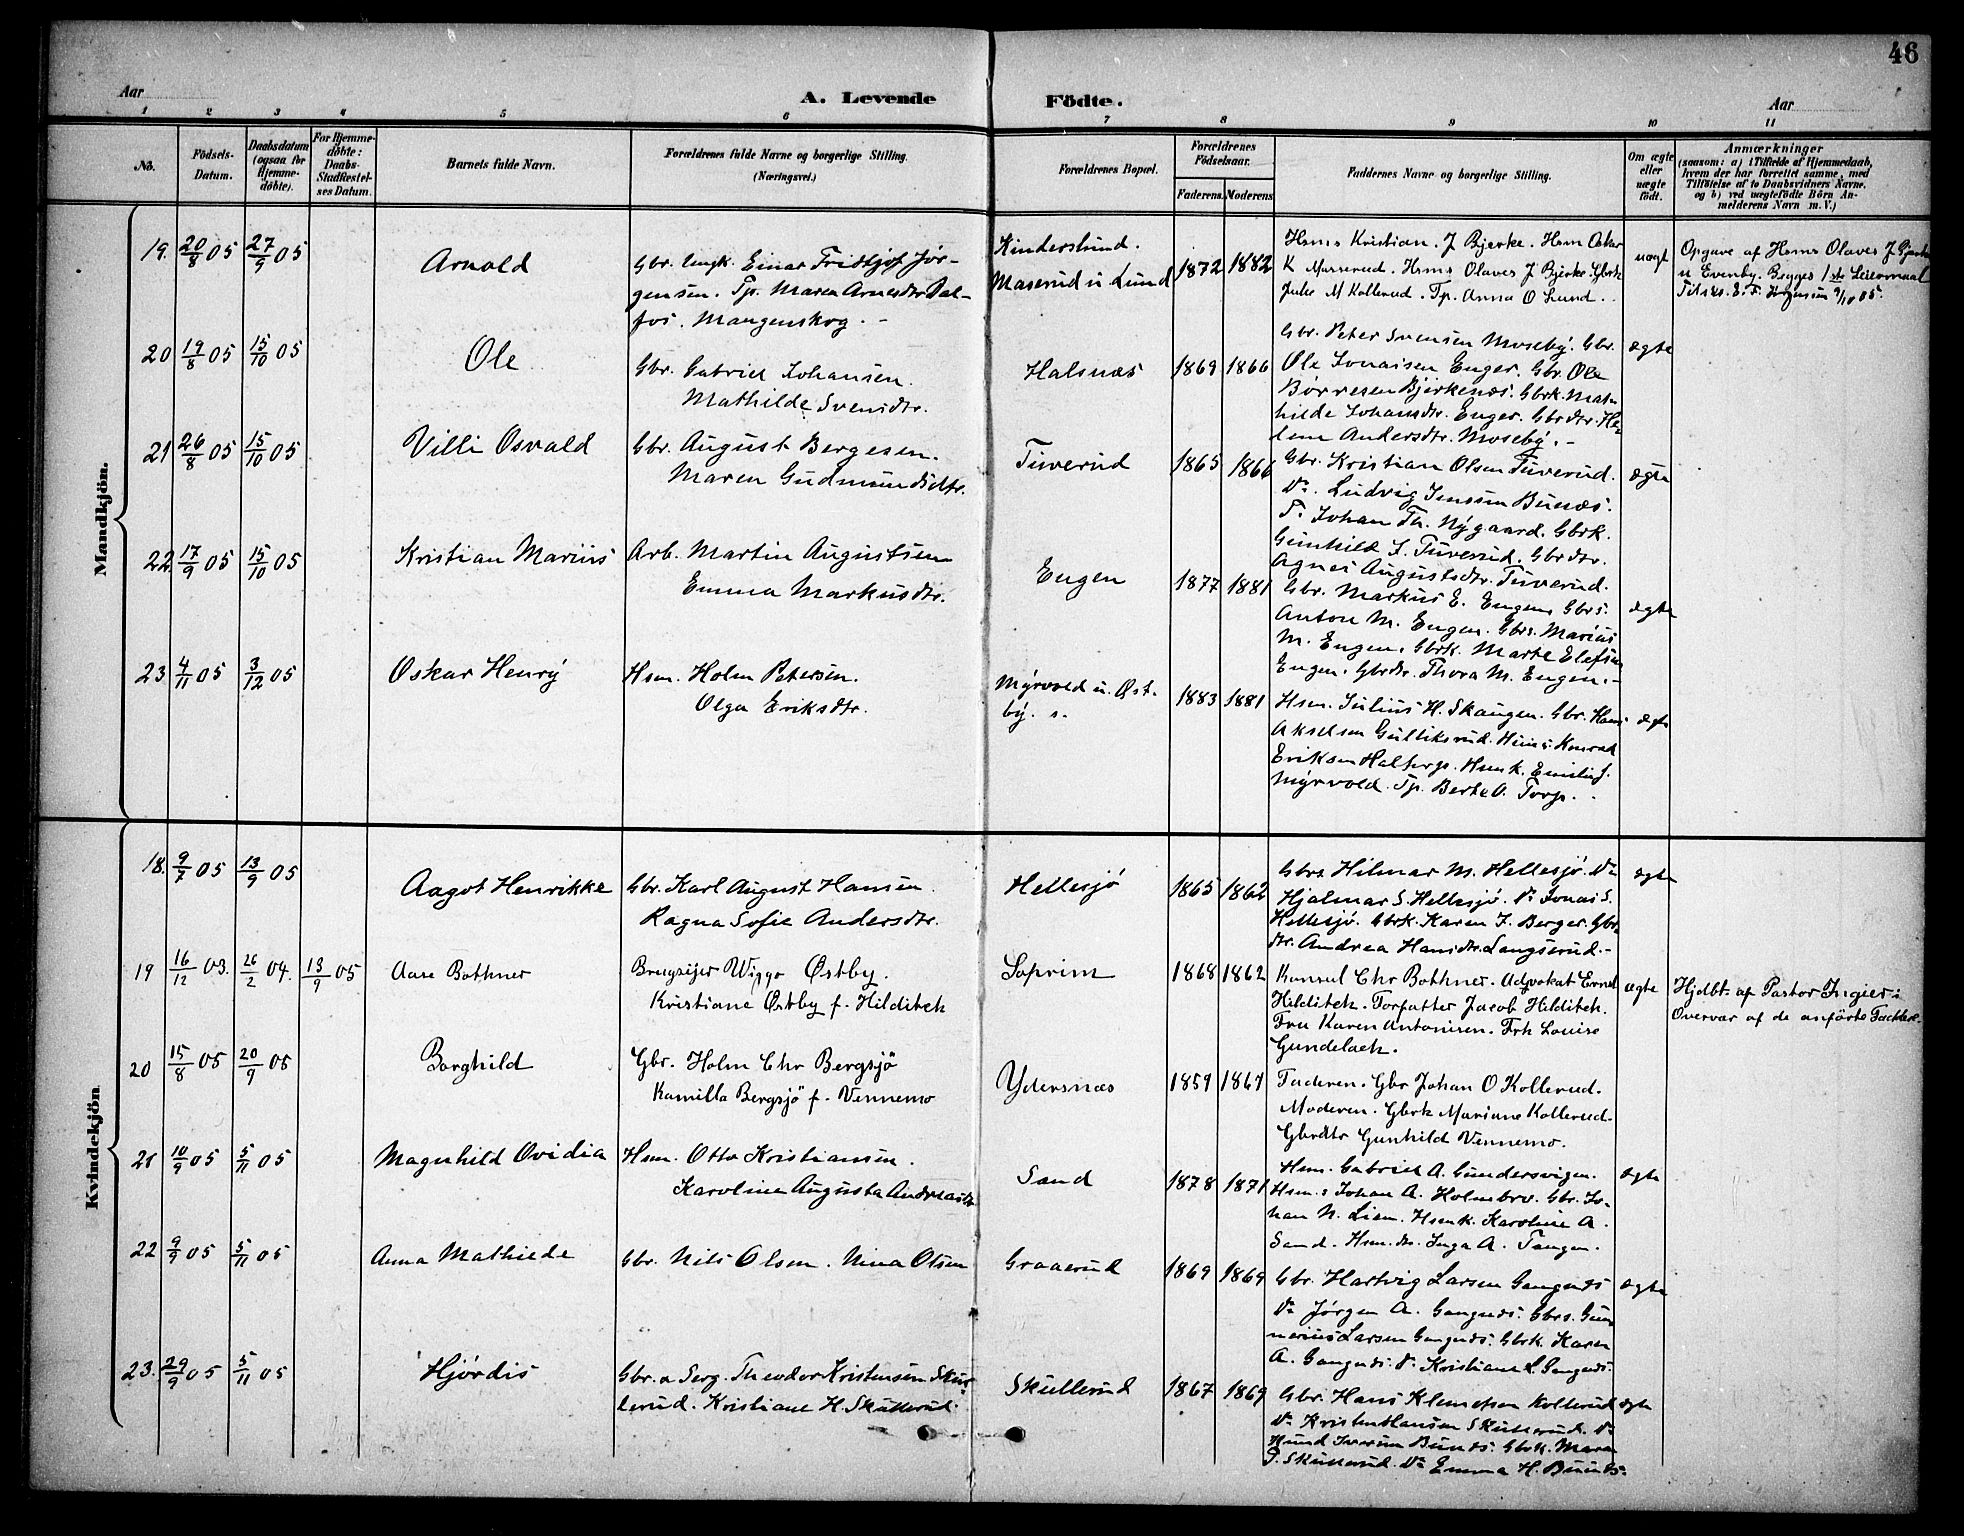 46
Aar
A. Levende Födte.
Aar
1 2 3 4 5 6 7 8 9 10 11
No.
Födsels-Datum.
Daabsdatum (ogsaa for Hjemme-döbte).
For Hjemme-döbte: Daabs-Stadfæstel-ses Datum.
Barnets fulde Navn.
Forældrenes fulde Navne og borgerlige Stilling. (Næringsvei.)
Forældrenes Bopæl.
Forældrenes Födselsaar.
Faderens. Moderens.
Faddernes Navne og borgerlige Stilling.
Om ægte eller uægte födt.
Anmærkninger
(saasom: a) i Tilfælde af Hjemmedaab,
hvem der har forrettet samme, med
Tilföielse af to Daabsvidners Navne,
og b) ved uægtefödte Börn An-
melderens Navn m. V.)
Mandkjön.
19. 20/8 05 27/9 05 Arnold
Gbr. Ungk. Einar Fridtjof Jør-
gensen. Tp. Maren Arnesdtr Dal-
fos. Mangenskog. -
Kinderslund.
Maserud u Lund
1872 1882
Hsms Kristian. J Bjerke. Hsm Oskar
K Masserud. Hsms Olaves J Bjerke. Gbrk
Julie M Kollerud. Tp. Anna O Lund. .
uægt
Opgave af Hsms Olaves J Bjerke
u Evenby. Begges 1ste Leiermaal
Tilskr. E. F. Jørgensen 9/10 05.
20 19/8 05 15/10 05 Ole
Gbr. Gabriel Johansen.
Mathilde Svensdtr.
Halsnæs 1869 1866
Gbr. Peter Svensen Moseby. Gbr.
Ole Jonassen Enger. Gbr. Ole
Borresen Bjerkenæs. Gbrk. Mat-
hilde Johansdtr. Enger. Gbrdtr. He-
lene Andersdtr. Moseby. -
ægte
21 26/8 05 15/10 05 Villi Osvald
Gbr. August Bergesen.
Maren Gudmundsdtr.
Tuverud 1865 1866
Gbr. Kristian Olsen Tuverud.
Do. Ludvig Jenssen Bunæs.
T. Johan Th. Nygaard. Gbrk.
Gunhild J. Tuverud. Gbrdtr.
Agnes Augustsdtr. Tuverud.
ægte
22. 17/9 05 15/10 05 Kristian Marius
Arb. Martin Augustsen
Emma Markusdtr.
Engen 1877 1881
Gbr. Markus E. Engen. Gbrs.
Anton M. Engen. Gbrs. Marius
M. Engen. Gbrk. Marte Elefsen
Engen. Gbrdtr. Thora M. Engen. -
ægte
23 4/11 05 3/12 05 Oskar Henry
Hsm. Holm Petersen.
Olga Eriksdtr.
Myrvold u. Øst-
by. s.
1883 1881
Hsm. Julius H. Skaugen. Gbr. Hans
Akselsen Gulliksrud. Hsms Konrad
Eriksen Halfarp. Hsmk. Emilie J.
Myrvold. Tp. Berte A. Torp. -
ægte
Kvindekjön
18. 9/7 05 13/9 05 Aagot Henrikke
Gbr. Karl August Hansen.
Ragna Sofie Andersdtr.
Hellesjö 1865 1862
Gbrs Hilmar M. Hellesjö. Do
Hjalmar S. Hellesjö. Do Jonas S.
Hellesjö. Gbrk. Karen J. Berger. Gbr-
dtr. Andrea Hansdtr. Langserud. -
ægte
19 16/12 03. 26/2 04. 13/9 05 Aase Bothner
Brugseier Wiggo Østby.
Kristiane Østby f. Hilditch
Soprim 1868 1862
Konsul Chr Bothner. Advokat Ernst
Hilditch. Forfatter Jacob Hilditch.
Fru Karen Antonisen. Frk Louise
Gundelach.
ægte
Hjdbt. af Pastor Ingier i
Overvær af de anførte Faddere.
20 15/8 05 20/9 05 Borghild
Gbr. Holm Chr Bergsjö
Kamilla Bergsjö f. Vennemo
Ydersnæs 1859 1867
Faderen. Gbr Johan O Kollerud.
Moderen. Gbrk Mariane Kollerud.
Gbrdtr Gunhild Vennemo.
21 10/9 05 5/11 05 Magnhild Ovidia
Hsm. Otto Kristiansen.
Karoline Augusta Andreasdtr
Sand 1878 1871
Hsm. Gabriel A. Gundersvigen.
Hsm. s Johan A. Holmbro. Gbr. Jo-
han N. Lien. Hsmk. Karoline A.
Sand. Hsm.dtr. Inga A. Tangen.
ægte
22 9/9 05 5/11 05 Anna Mathilde
Gbr. Nils Olsen. Nina Olsen
Graaerud 1869 1869
Gbr. Hartvig Larsen Gangnæs
Do Jørgen A. Gangnæs. Gbrs. Gun-
nerius Larsen Gangnæs. Gbrk. Karen
A. Gangnæs. Do Kristiane L. Gangnæs.
ægte
23. 29/9 05 5/11 05 Hjördis
Gbr. & Serg. Theodor Kristensen Skul-
lerud. Kristiane H. Skullerud.
Skullerud 1867 1869
Gbr. Hans Klemetsen Kollerud
Do Kristen Hansen Skullerud. Do
Knud Iversen Bunæs. Gbrk. Maren
P. Skullerud. Do Emma H. Bunæs.
ægte